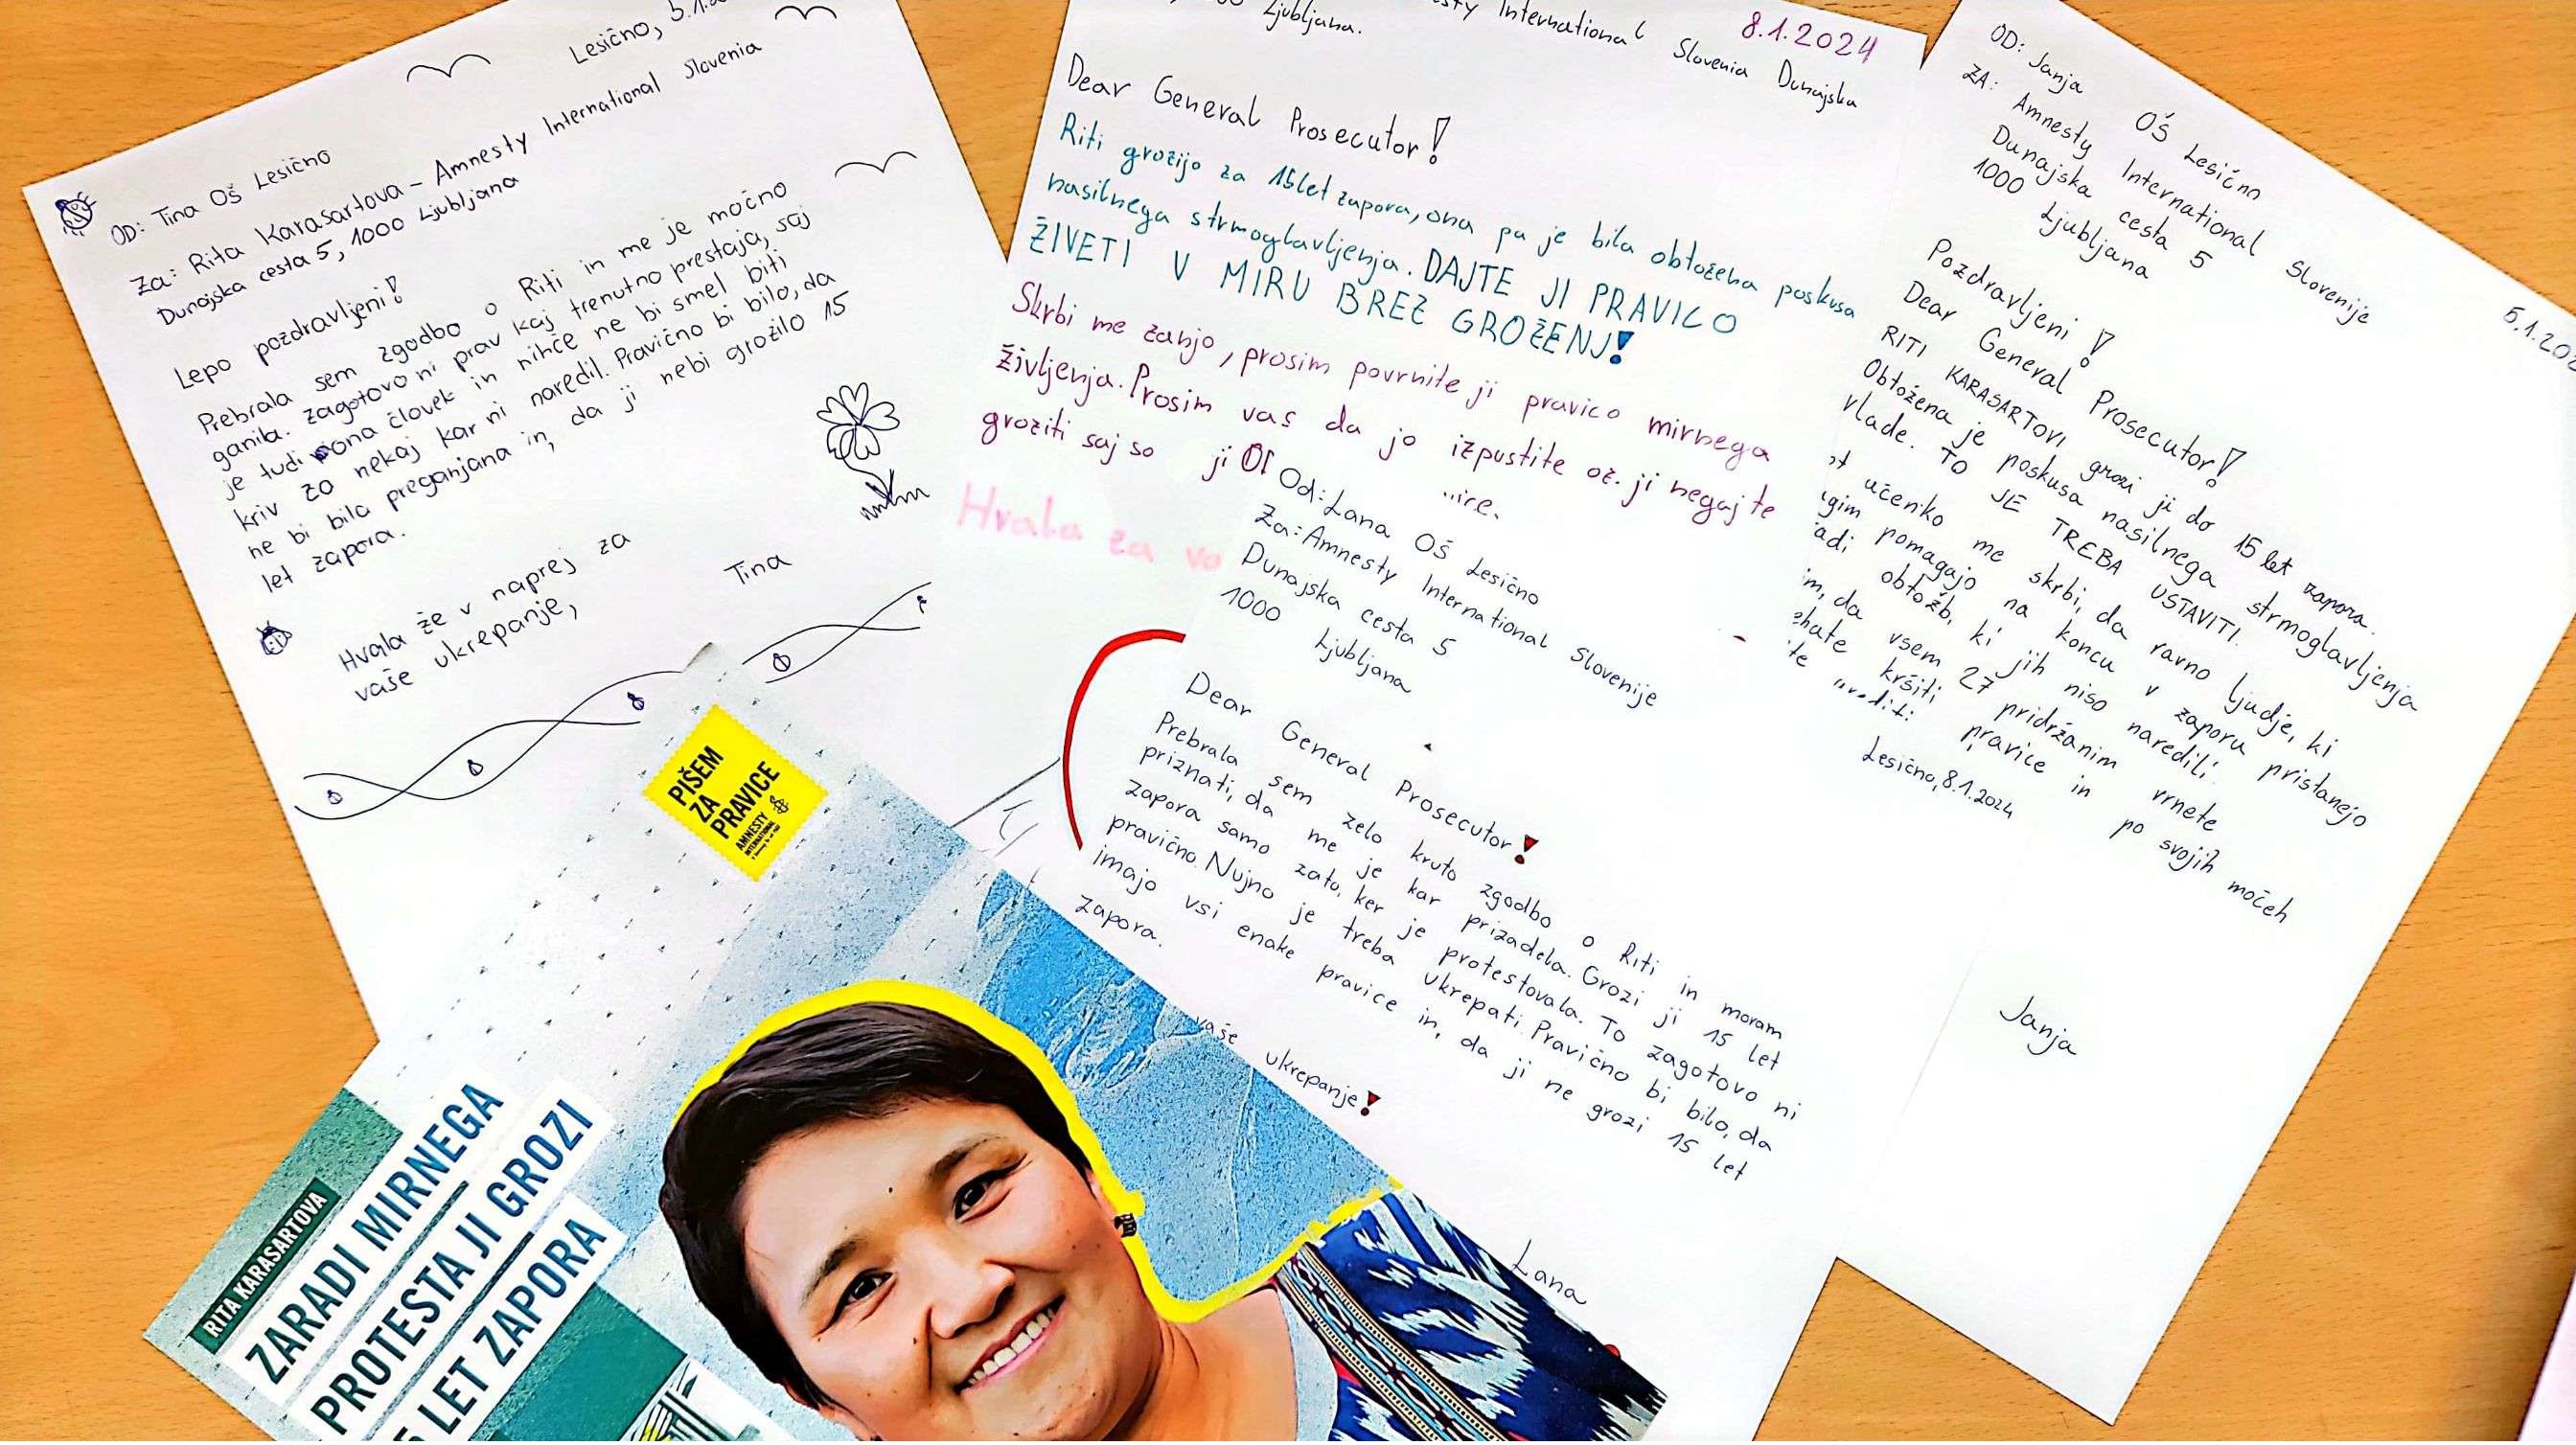 Lesično, 5.1.
OD: Tina OŠ Lesično
Za: Rita Karasartova - Amnesty International Slovenia
Dunajska cesta 5, 1000 Ljubljana
Lepo pozdravljeni!
Prebrala sem zgodbo o Riti in me je močno
ganila. Zagotovo ni prav kaj trenutno prestaja, saj
je tudi ona človek in nihče ne bi smel biti
kriv za nekaj kar ni naredil. Pravično bi bilo, da
ne bi bila preganjana in, da ji nebi grozilo 15
let zapora.
Hvala že v naprej za
vaše ukrepanje,
Tina
International Slovenia Dunajska
Ljubljana.
8.1.2024
Dear General Prosecutor!
Riti grozijo za 15let zapora, ona pa je bila obtožena poskusa
nasilnega strmoglavljenja. DAJTE JI PRAVICO
ŽIVETI V MIRU BREZ GROŽENJ!
Skrbi me zanjo, prosim povrnite ji pravico mirnega
življenja. Prosim vas da jo izpustite oz. ji negajte
groziti saj so ji
Hvala za
Od: Lana OŠ Lesično
Za: Amnesty International Slovenije
Dunajska cesta 5
1000 Ljubljana
Dear General Prosecutor!
Prebrala sem zelo kruto zgodbo o Riti in moram
priznati, da me je kar prizadela. Grozi ji 15 let
zapora samo zato, ker je protestovala. To zagotovo ni
pravično. Nujno je treba ukrepati. Pravično bi bilo, da
imajo vsi enake pravice in, da ji ne grozi 15 let
zapora.
vaše ukrepanje!
Lana
OD: Janja OŠ Lesično
ZA: Amnesty International Slovenije
Dunajska cesta 5
1000 Ljubljana
5.1.202
Pozdravljeni!
Dear General Prosecutor!
RITI KARASARTOVI grozi ji do 15 let zapora.
Obtožena je poskusa nasilnega strmoglavljenja
vlade. TO JE TREBA USTAVITI.
učenko me skrbi, da ravno ljudje, ki
pomagajo na koncu v zaporu pristanejo
obtožb, ki jih niso naredili.
da vsem 27 pridržanim vrnete
kršiti pravice in po svojih močeh
Lesično, 8.1.2024
Janja
PIŠEM
ZA
PRAVICE
AMNESTY
INTERNATIONAL
RITA KARASARTOVA
ZARADI MIRNEGA
PROTESTA JI GROZI
5 LET ZAPORA